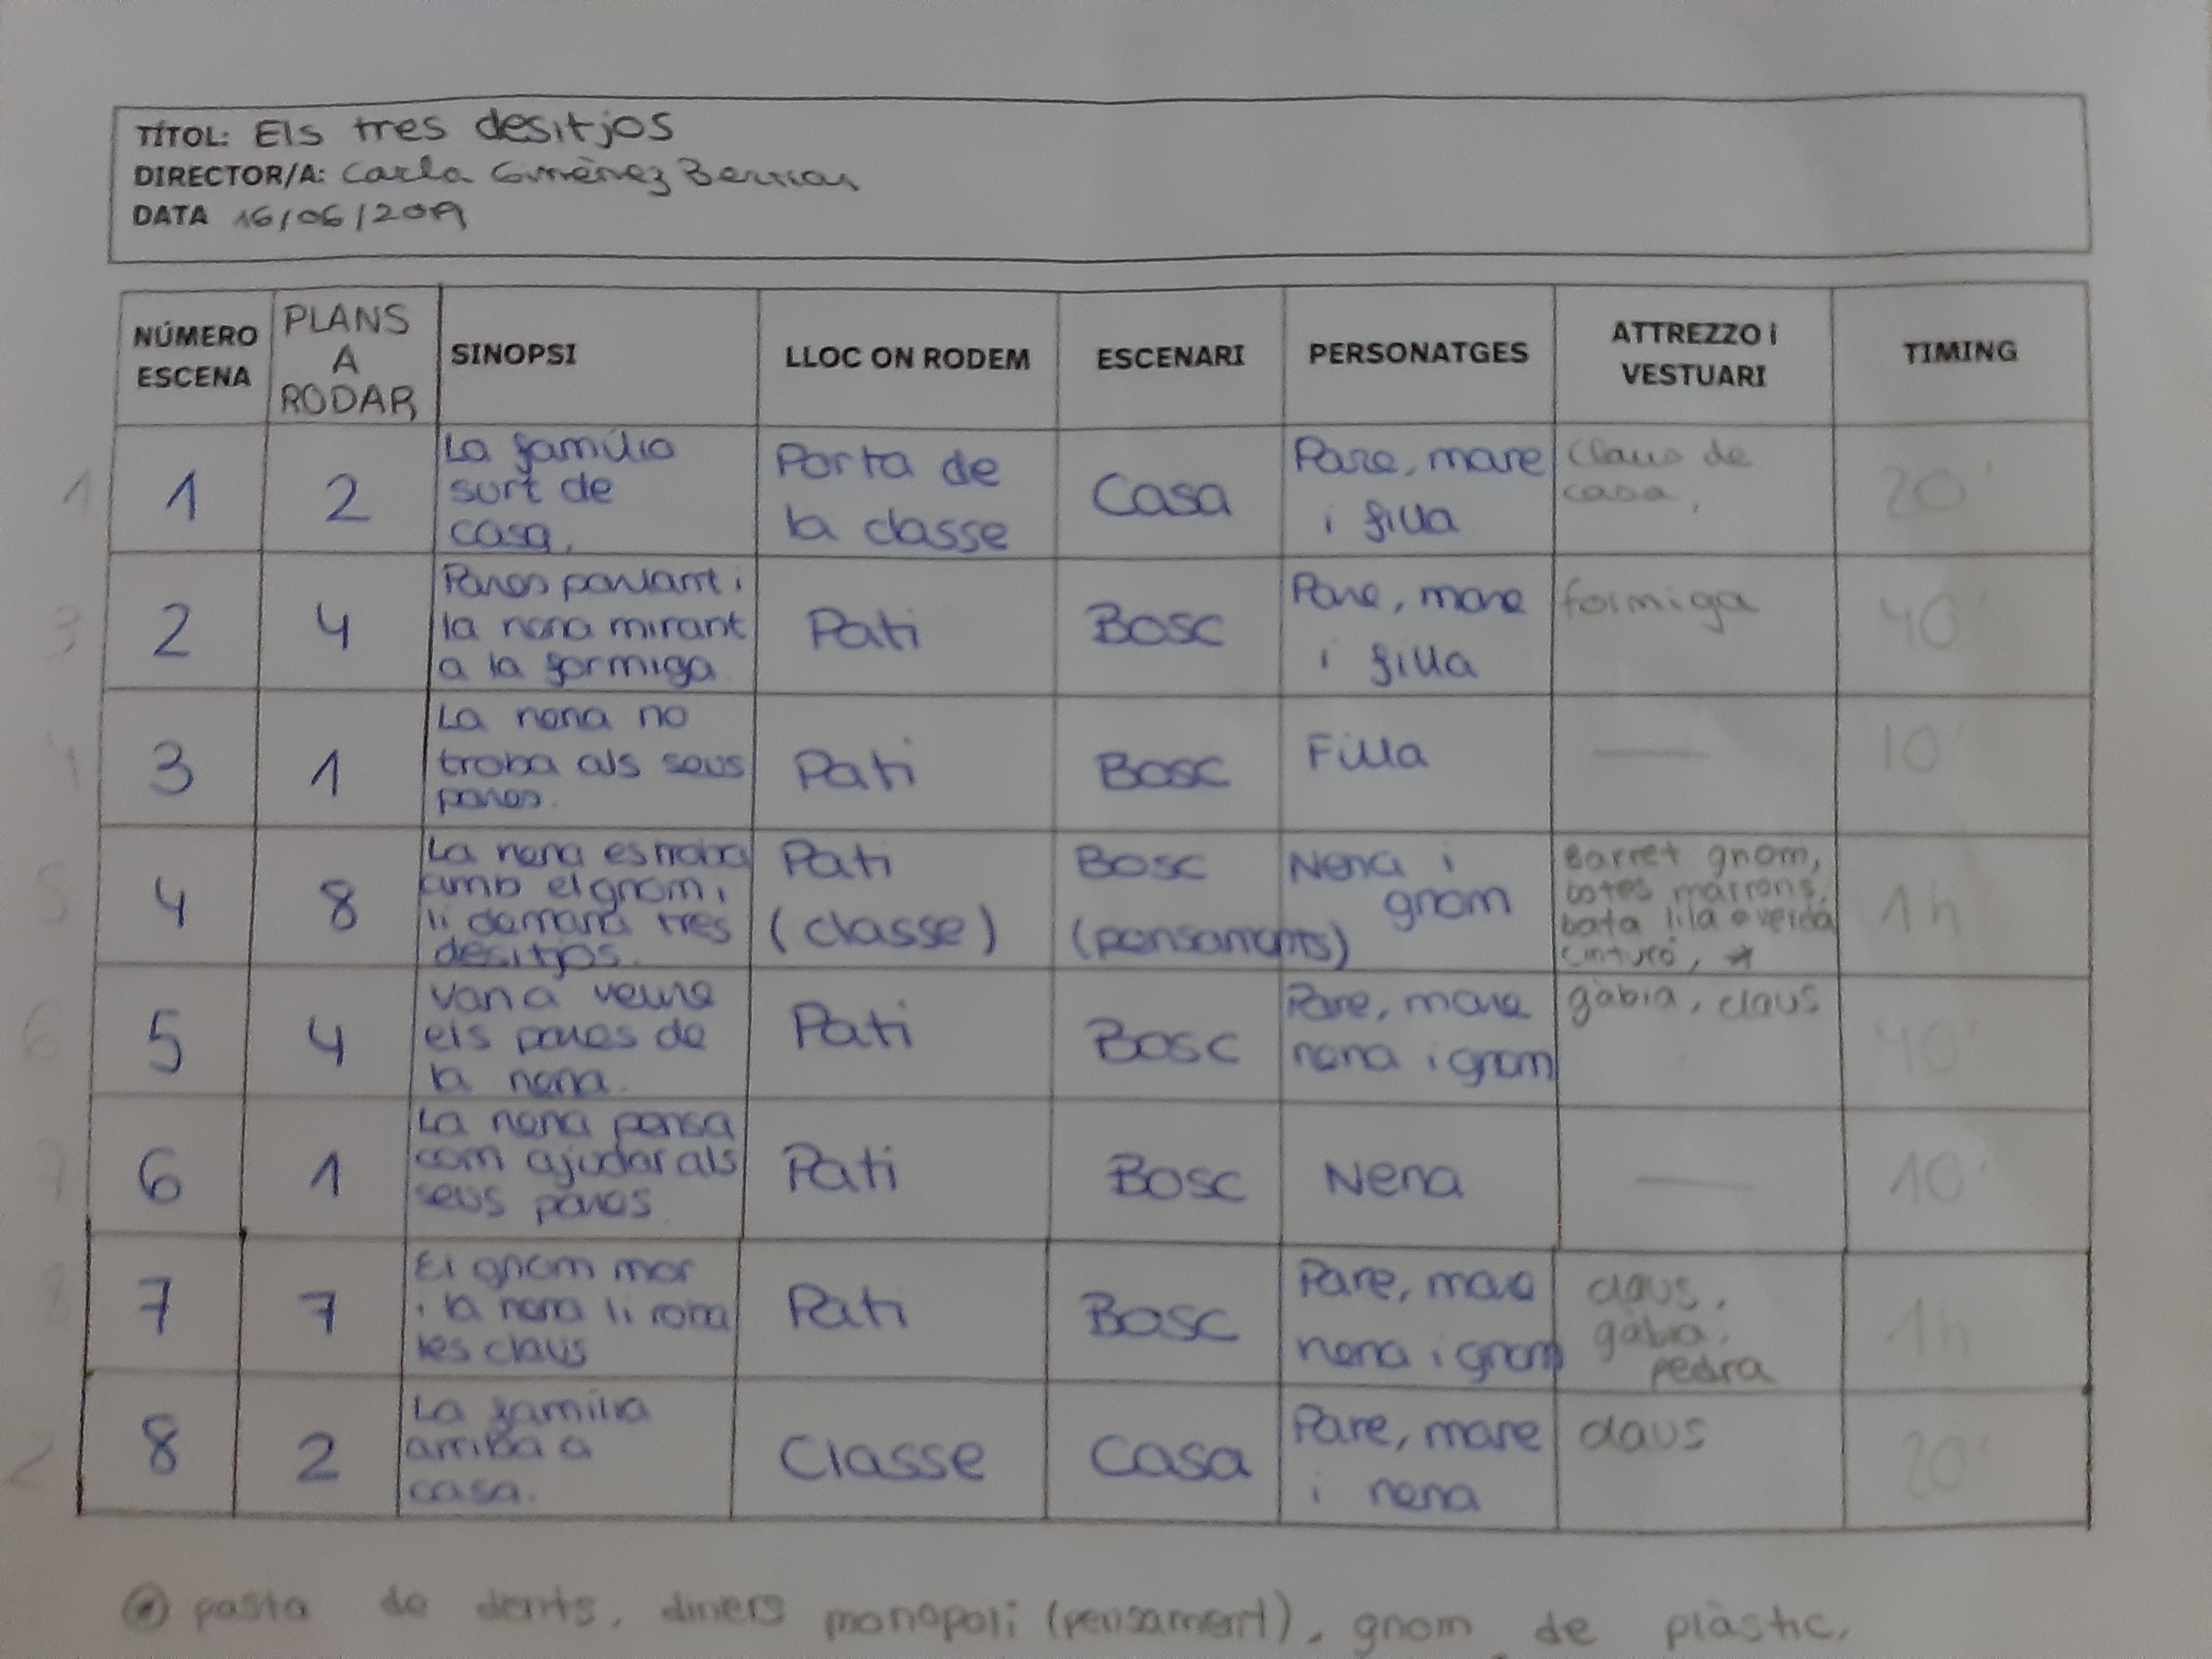 TÍTOL: Els tres desitjos
DIRECTOR/A: Carla Giménez
DATA 16/06/2019
NÚMERO ESCENA
PLANS A RODAR
SINOPSI
LLOC ON RODEM
ESCENARI
PERSONATGES
ATTREZZO i VESTUARI
TIMING
1
1
2
La família
surt de
casa.
Porta de
la classe
Casa
Pare, mare
i filla
Claus de
casa,
20'
3
2
4
Pares parlant i
la nena mirant
a la formiga.
Pati
Bosc
Pare, mare
i filla
formiga
40'
4
3
1
La nena no
troba als seus
pares.
Pati
Bosc
Filla
—
10'
5
4
8
La nena es troba
amb el gnom i
li demana tres
desitjos.
Pati
(classe)
Bosc
(pensaments)
Nena i
gnom
Barret gnom,
botes marrons,
bata lila o verda
cinturó, *
1h
6
5
4
Van a veure
els pares de
la nena.
Pati
Bosc
Pare, mare
nena i gnom
gàbia, claus
40'
7
6
1
La nena pensa
com ajudar als
seus pares
Pati
Bosc
Nena
—
10'
8
7
7
El gnom mor
i la nena li roba
les claus
Pati
Bosc
Pare, mare
nena i gnom
claus,
gàbia,
pedra
1h
2
8
2
La família
arriba a
casa.
Classe
Casa
Pare, mare
i nena
claus
20'
* pasta de dents, diners monopoli (pensament), gnom de plàstic,